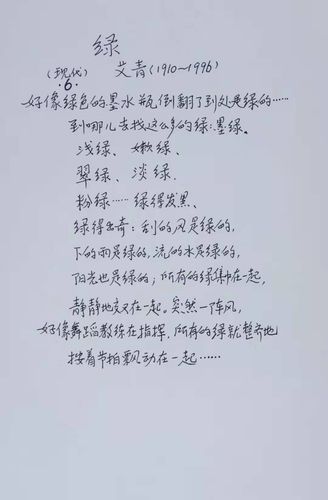 绿
(现代) 艾青(1910~1996)
.6.
好像绿色的墨水瓶倒翻了到处是绿的……
到哪儿去找这么多的绿:墨绿、
浅绿、嫩绿、
翠绿、淡绿.
粉绿……绿得发黑、
绿得出奇:刮的风是绿的,
下的雨是绿的,流的水是绿的,
阳光也是绿的;所有的绿集中在一起,
静静地交叉在一起。突然一阵风,
好像舞蹈教练在指挥,所有的绿就整齐地
按着节拍飘动在一起……